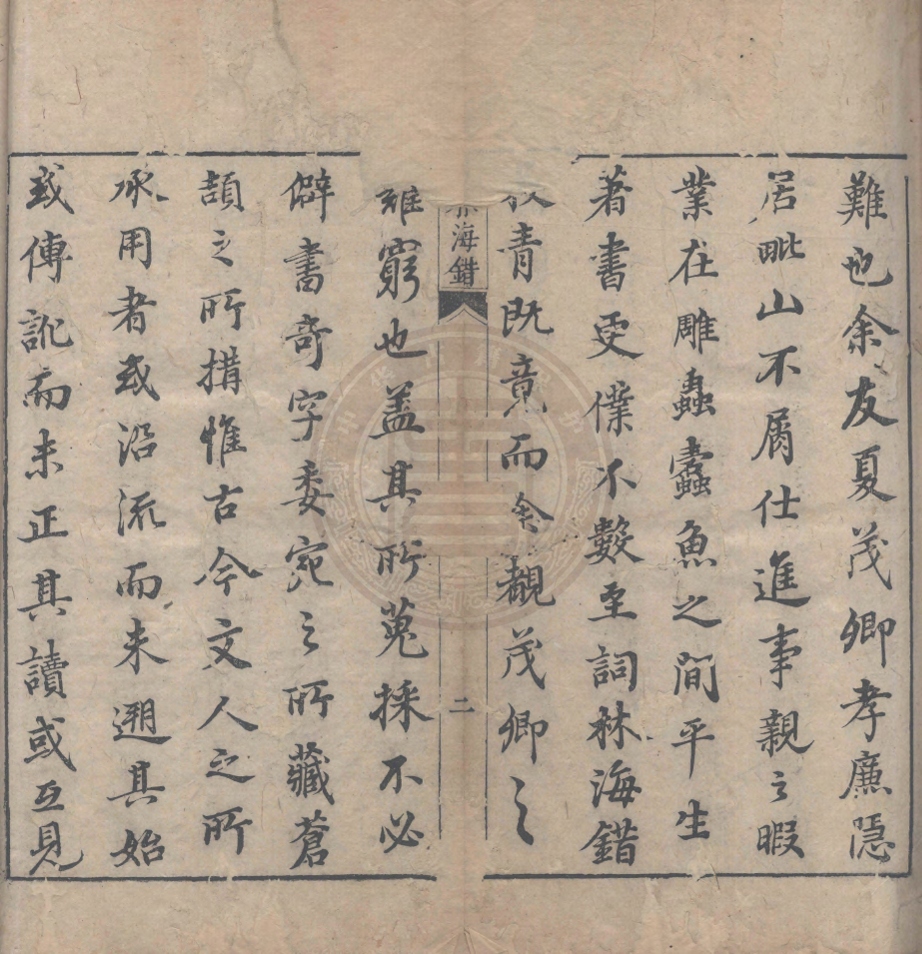 難也余友夏茂卿孝廉隱
居毗山不屑仕進事親之暇
業在雕蟲蠹魚之間平生
著書更僕不數至詞林海錯
青既竟而余覩茂卿之
海錯
二
難窮也蓋其所蒐採不必
僻書奇字委宛之所藏蒼
頡之所措惟古今文人之所
承用者或沿流而未遡其始
或傳訛而未正其讀或互見